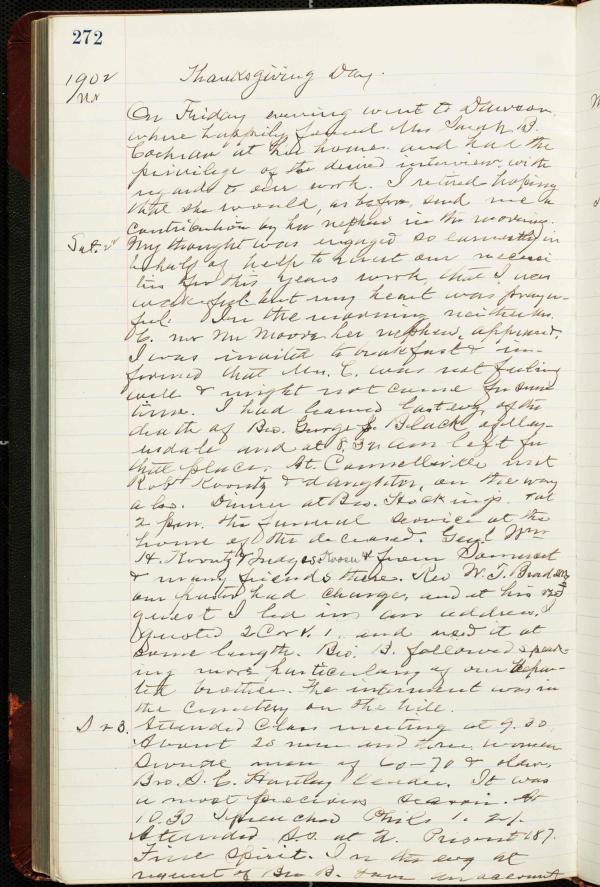 272
1902 Thanksgiving Day.
Nov
On Friday evening went to Dawson
where happily found Mrs Sarah B.
Cochran at her home and had the
privilege of the desired interview with
regards to our work. I retired hoping
that she would, as before, send me a
contribution by her nephew in the morning.
My thought was engaged so earnestly in
behalf of help to meet our necessi
ties for this years work, that I was
wakeful but my heart was prayer-
ful. In the morning neither Mrs.
C. nor Mr Moore her nephew, appeared.
I was invited to breakfast & in-
formed that Mrs. C. was not feeling
well & might not come for some
time. I had learned last evg. of the
death of Bro. George J. Black of Mey-
ersdale and at 8. am left for
that place. At Connellsville met
Robt Koontz & daughter, on the way
also. Dinner at Bro. Hockings. & at
2 p.m. the funeral service at the
home of the deceased. Genl Wm
H. Koontz & Judge Kooser & from Somerset
& many friends there. Rev W. T. Braden
our pastor had charge, and at his re
quest I led in an address. I
quoted 2 Cor V. 1. and used it at
some length. Bro. B. followed speak-
ing more particularly of our depar-
ted brother. The interment was in
the cemetery on the hill.
Attended Class meeting at 9.30
About 20 men and some women
Several men of 60-70 & older.
Bro. S. C. Hartley leader. It was
a most precious season. At
10.30 I preached Phil 1. 21.
Attended SS. at 2. Present 187.
Fine spirit. In the evg at
request of Bro B. gave an account